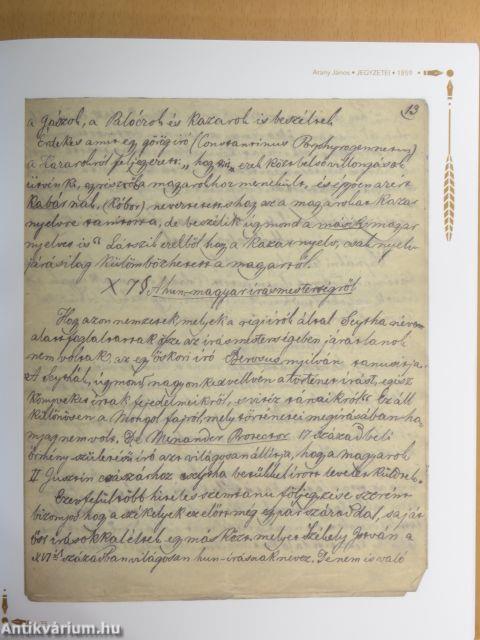 Arany János • JEGYZETEI • 1859
13
a gászok, a Palóczok és Kazarok is beszéltek
Érdekes amit egy görög író (Constantinus Porphyrogennetus)
a Kazarokról feljegyzett: „hogy ezek közt belső villongások
ütvén ki, egy része a magyarokhoz menekült, és éppen azért
kabar nak, (Kóbor) neveztetett s hogy az a magyarokat Kazar
nyelvre tanította, de beszélik úgymond a másik magyar
nyelvet is" Látszik ebből hogy a Kazár nyelv, csak nyelv
járásilag különbözhetett a magyartól.
X 7 § A hun-magyar írásmesterségről
Hogy azon nemzetek, melyek a régi írók által Scytha név
alatt foglaltattak össze az írás mesterségében járatlanok
nem voltak, az egy őskori író Berosus nyilván tanusítja.
A Scythák, úgymond, nagyon kedvellvén a történet írást, egész
könyveket írtak fejedelmeikről, s vitéz tanaikról. Ez áll
különösen a Mongol fajról, mely történetei megírásában ha-
nyag nem volt. De Menander Protector 17 századbeli
örmény születésű író azt világosan állítja, hogy a magyarok
II Jusztin császárhoz scytha betükkel írott levelet küldtek.
Ezen felül több hiteles szemtanu följegyzése szerint
bizonyos hogy a székelyek ezelőtt még egy pár századdal, saját
ősi írásokkal éltek egymás közt, melyet Székely István a
XVI ik században világosan hun-írásnak nevez. De nem is való
Antikvárium.hu
Antikvárium.hu